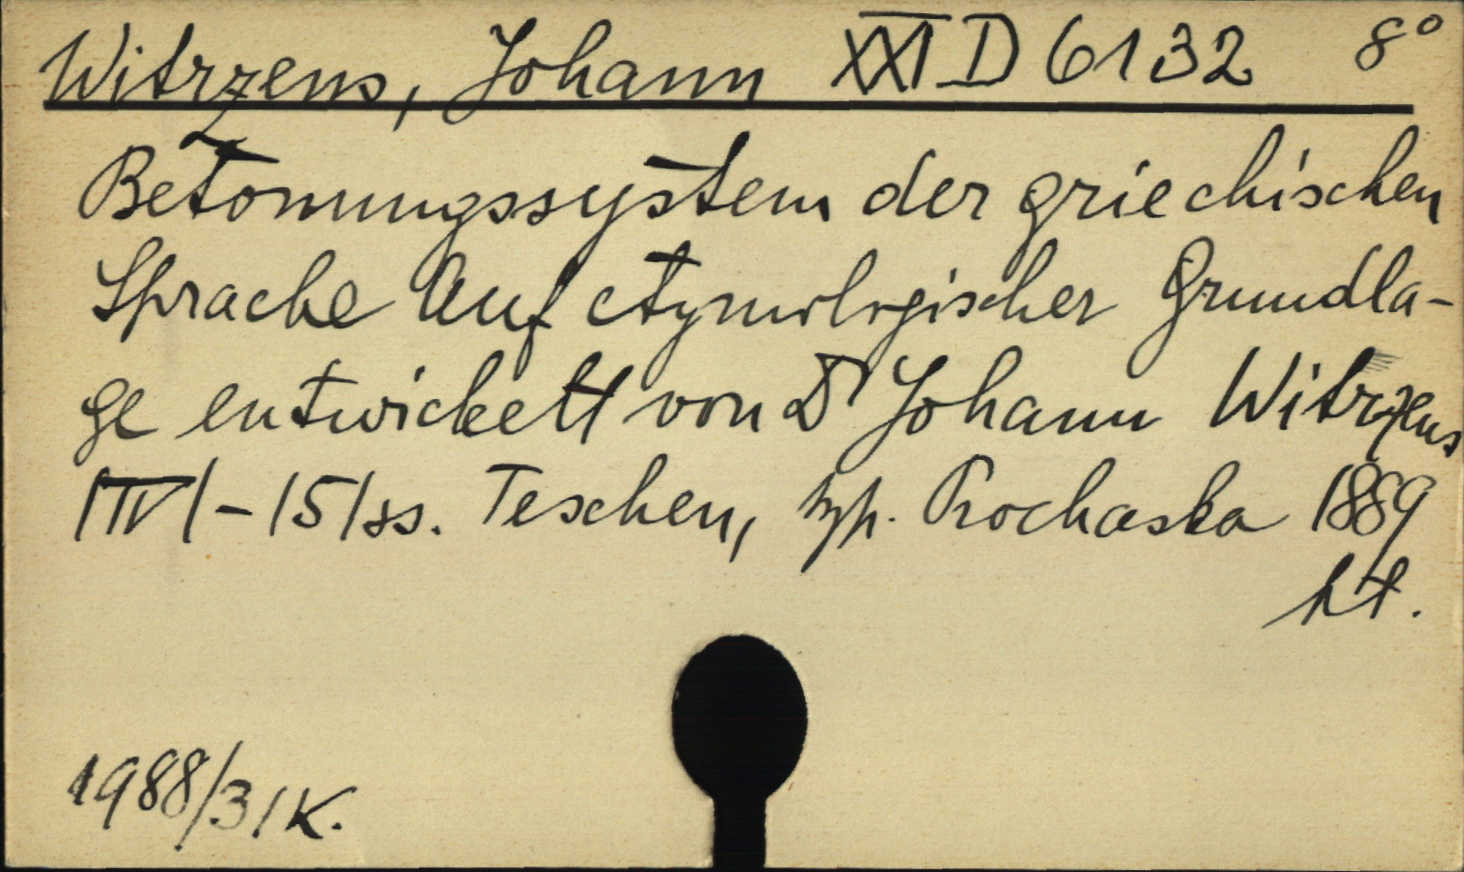 Witrzens, Johann XXI D 6132 8°
Betonungssystem der griechischen
Sprache auf etymologischer Grundla-
ge entwickelt von Dr Johann Witrzens
/IV/-151ss. Teschen, typ. Prochaska 1889
ht.
1988/31K.